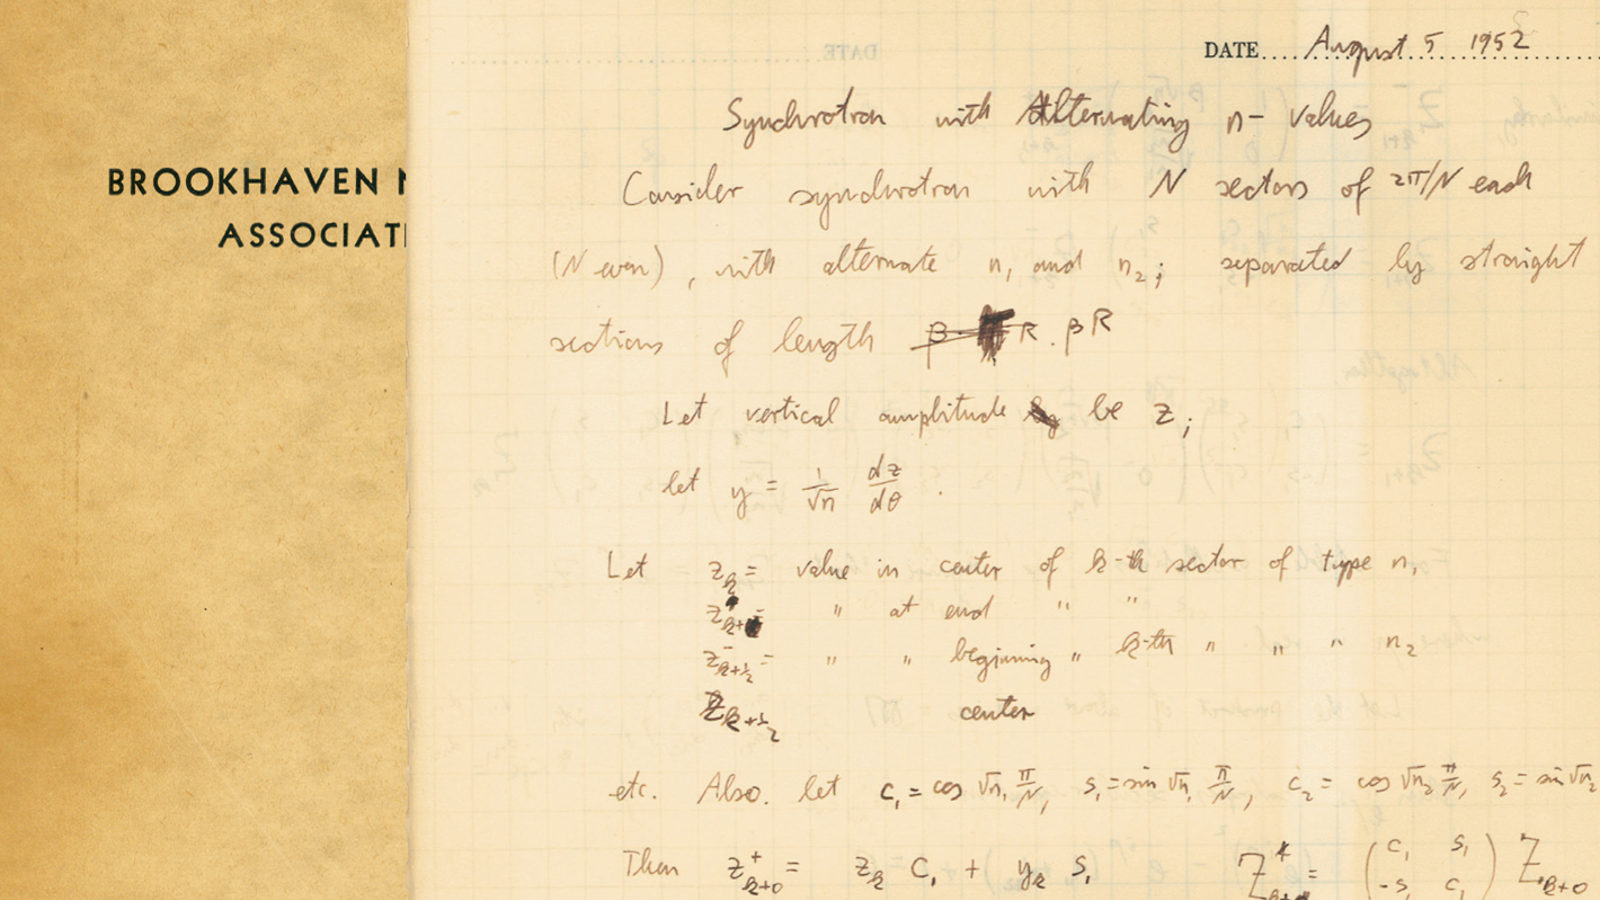 BROOKHAVEN N
ASSOCIATI
DATE
DATE.... August 5 1952
Synchrotron with Alternating n- values
Consider synchrotron with N sectors of 2π/N each
(N even), with alternate n₁ and n₂; separated by straight
sections of length β R. βR
Let vertical amplitude by be z;
let y = 1/√n dz/dθ.
Let z_k = value in center of k-th sector of type n₁
z_k+ = " at end " "
z⁻_k+½ = " " beginning " k-th " " " n₂
z_k+½ center
etc. Also. let c₁ = cos √n₁ π/N, s₁ = sin √n₁ π/N, c₂ = cos √n₂ π/N, s₂ = sin √n₂
Then z⁺_k+0 = z_k c₁ + y_k s₁ Z⁺ = (c₁ s₁ / -s₁ c₁) Z_k+0